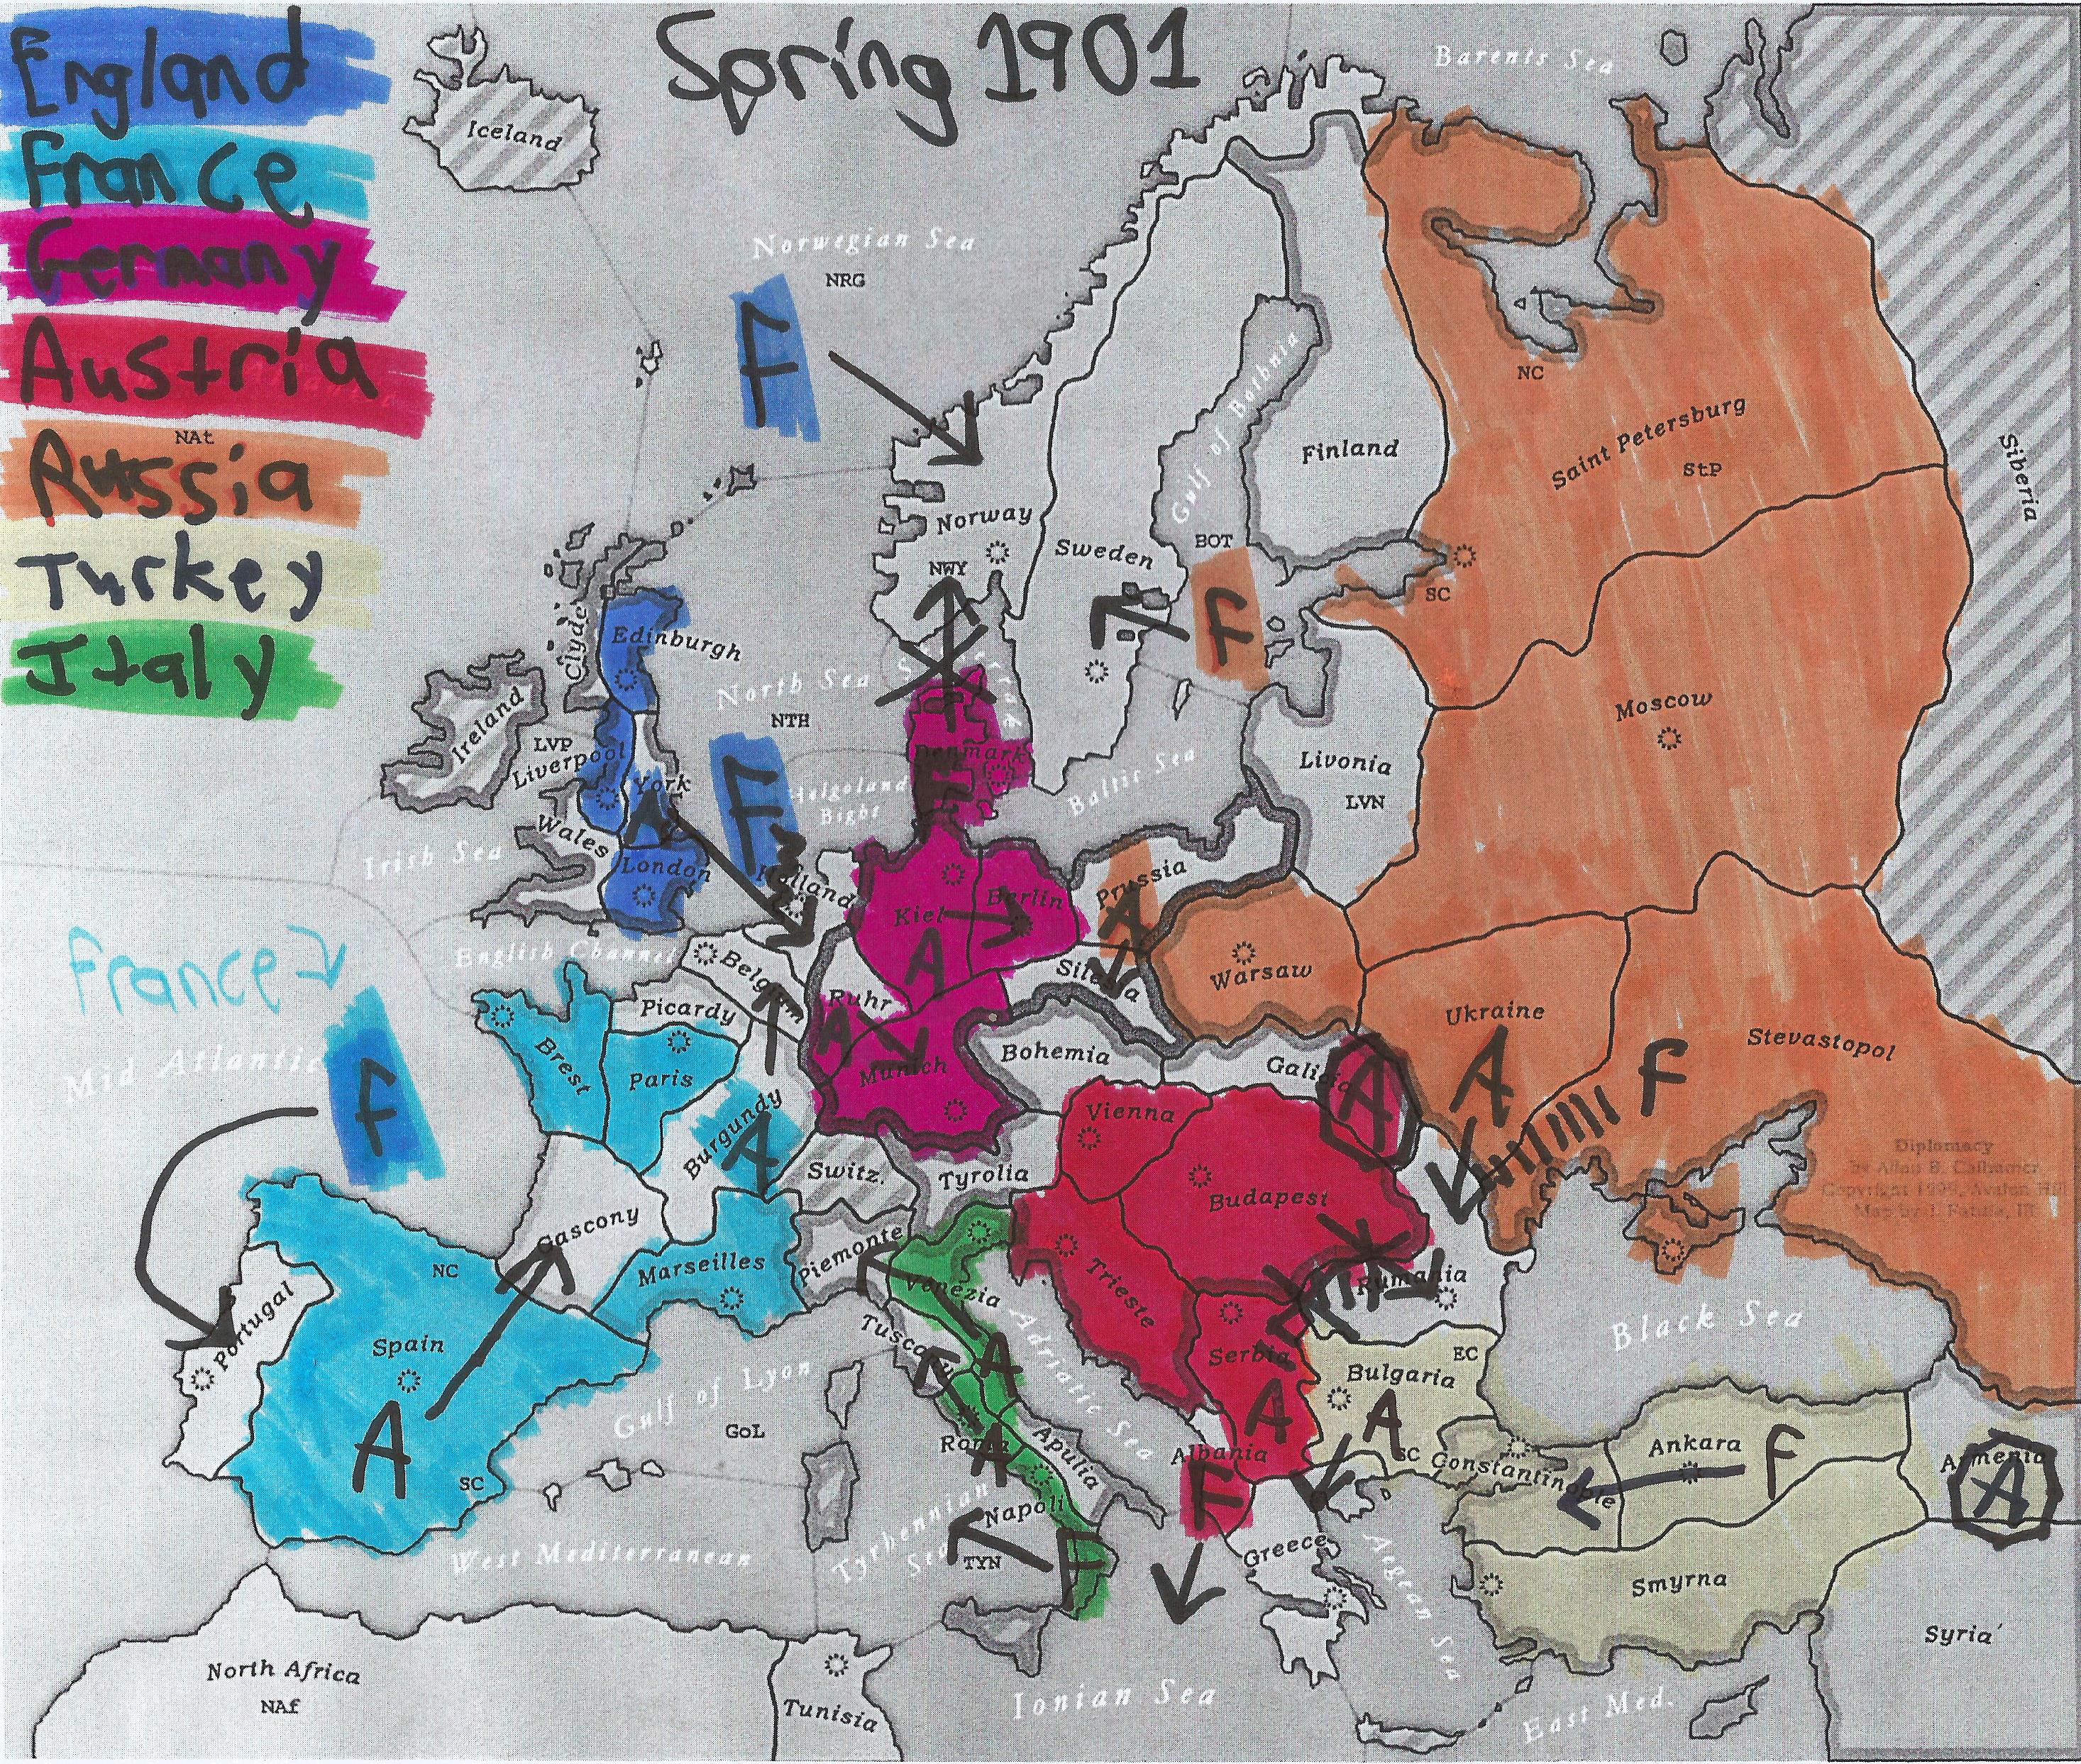 Spring 1901
England
France
Germany
Austria
Russia
Turkey
Italy
France
Barents Sea
Iceland
Norwegian Sea
NRG
F
NC
Saint Petersburg
StP
Siberia
Gulf of Bothnia
Finland
NAt
Norway
NWY
Sweden
BOT
SC
F
Clyde
Edinburgh
North Sea
NTH
Ireland
LVP
Liverpool
York
A
F
Denmark
F
Helgoland
Bight
Baltic Sea
Livonia
LVN
Moscow
Irish Sea
Wales
London
Holland
Kiel
A
Berlin
Prussia
A
Silesia
Warsaw
Ukraine
A
F
Stevastopol
English Channel
Belgium
Picardy
Ruhr
A
Munich
Bohemia
Galicia
A
Mid Atlantic
F
Brest
Paris
Burgundy
A
Switz.
Tyrolia
Vienna
Budapest
Diplomacy
Gascony
Marseilles
Piemonte
Venezia
A
Trieste
Rumania
Portugal
NC
Spain
A
SC
Gulf of Lyon
GoL
Tuscany
Adriatic Sea
Serbia
A
Bulgaria
A
EC
SC
Black Sea
Roma
A
Apulia
Albania
F
Constantinople
Ankara
F
Armenia
A
Napoli
F
Tyrhennian
Sea
TYN
West Mediterranean
Greece
Aegean Sea
Smyrna
Syria
North Africa
NAf
Tunisia
Ionian Sea
East Med.